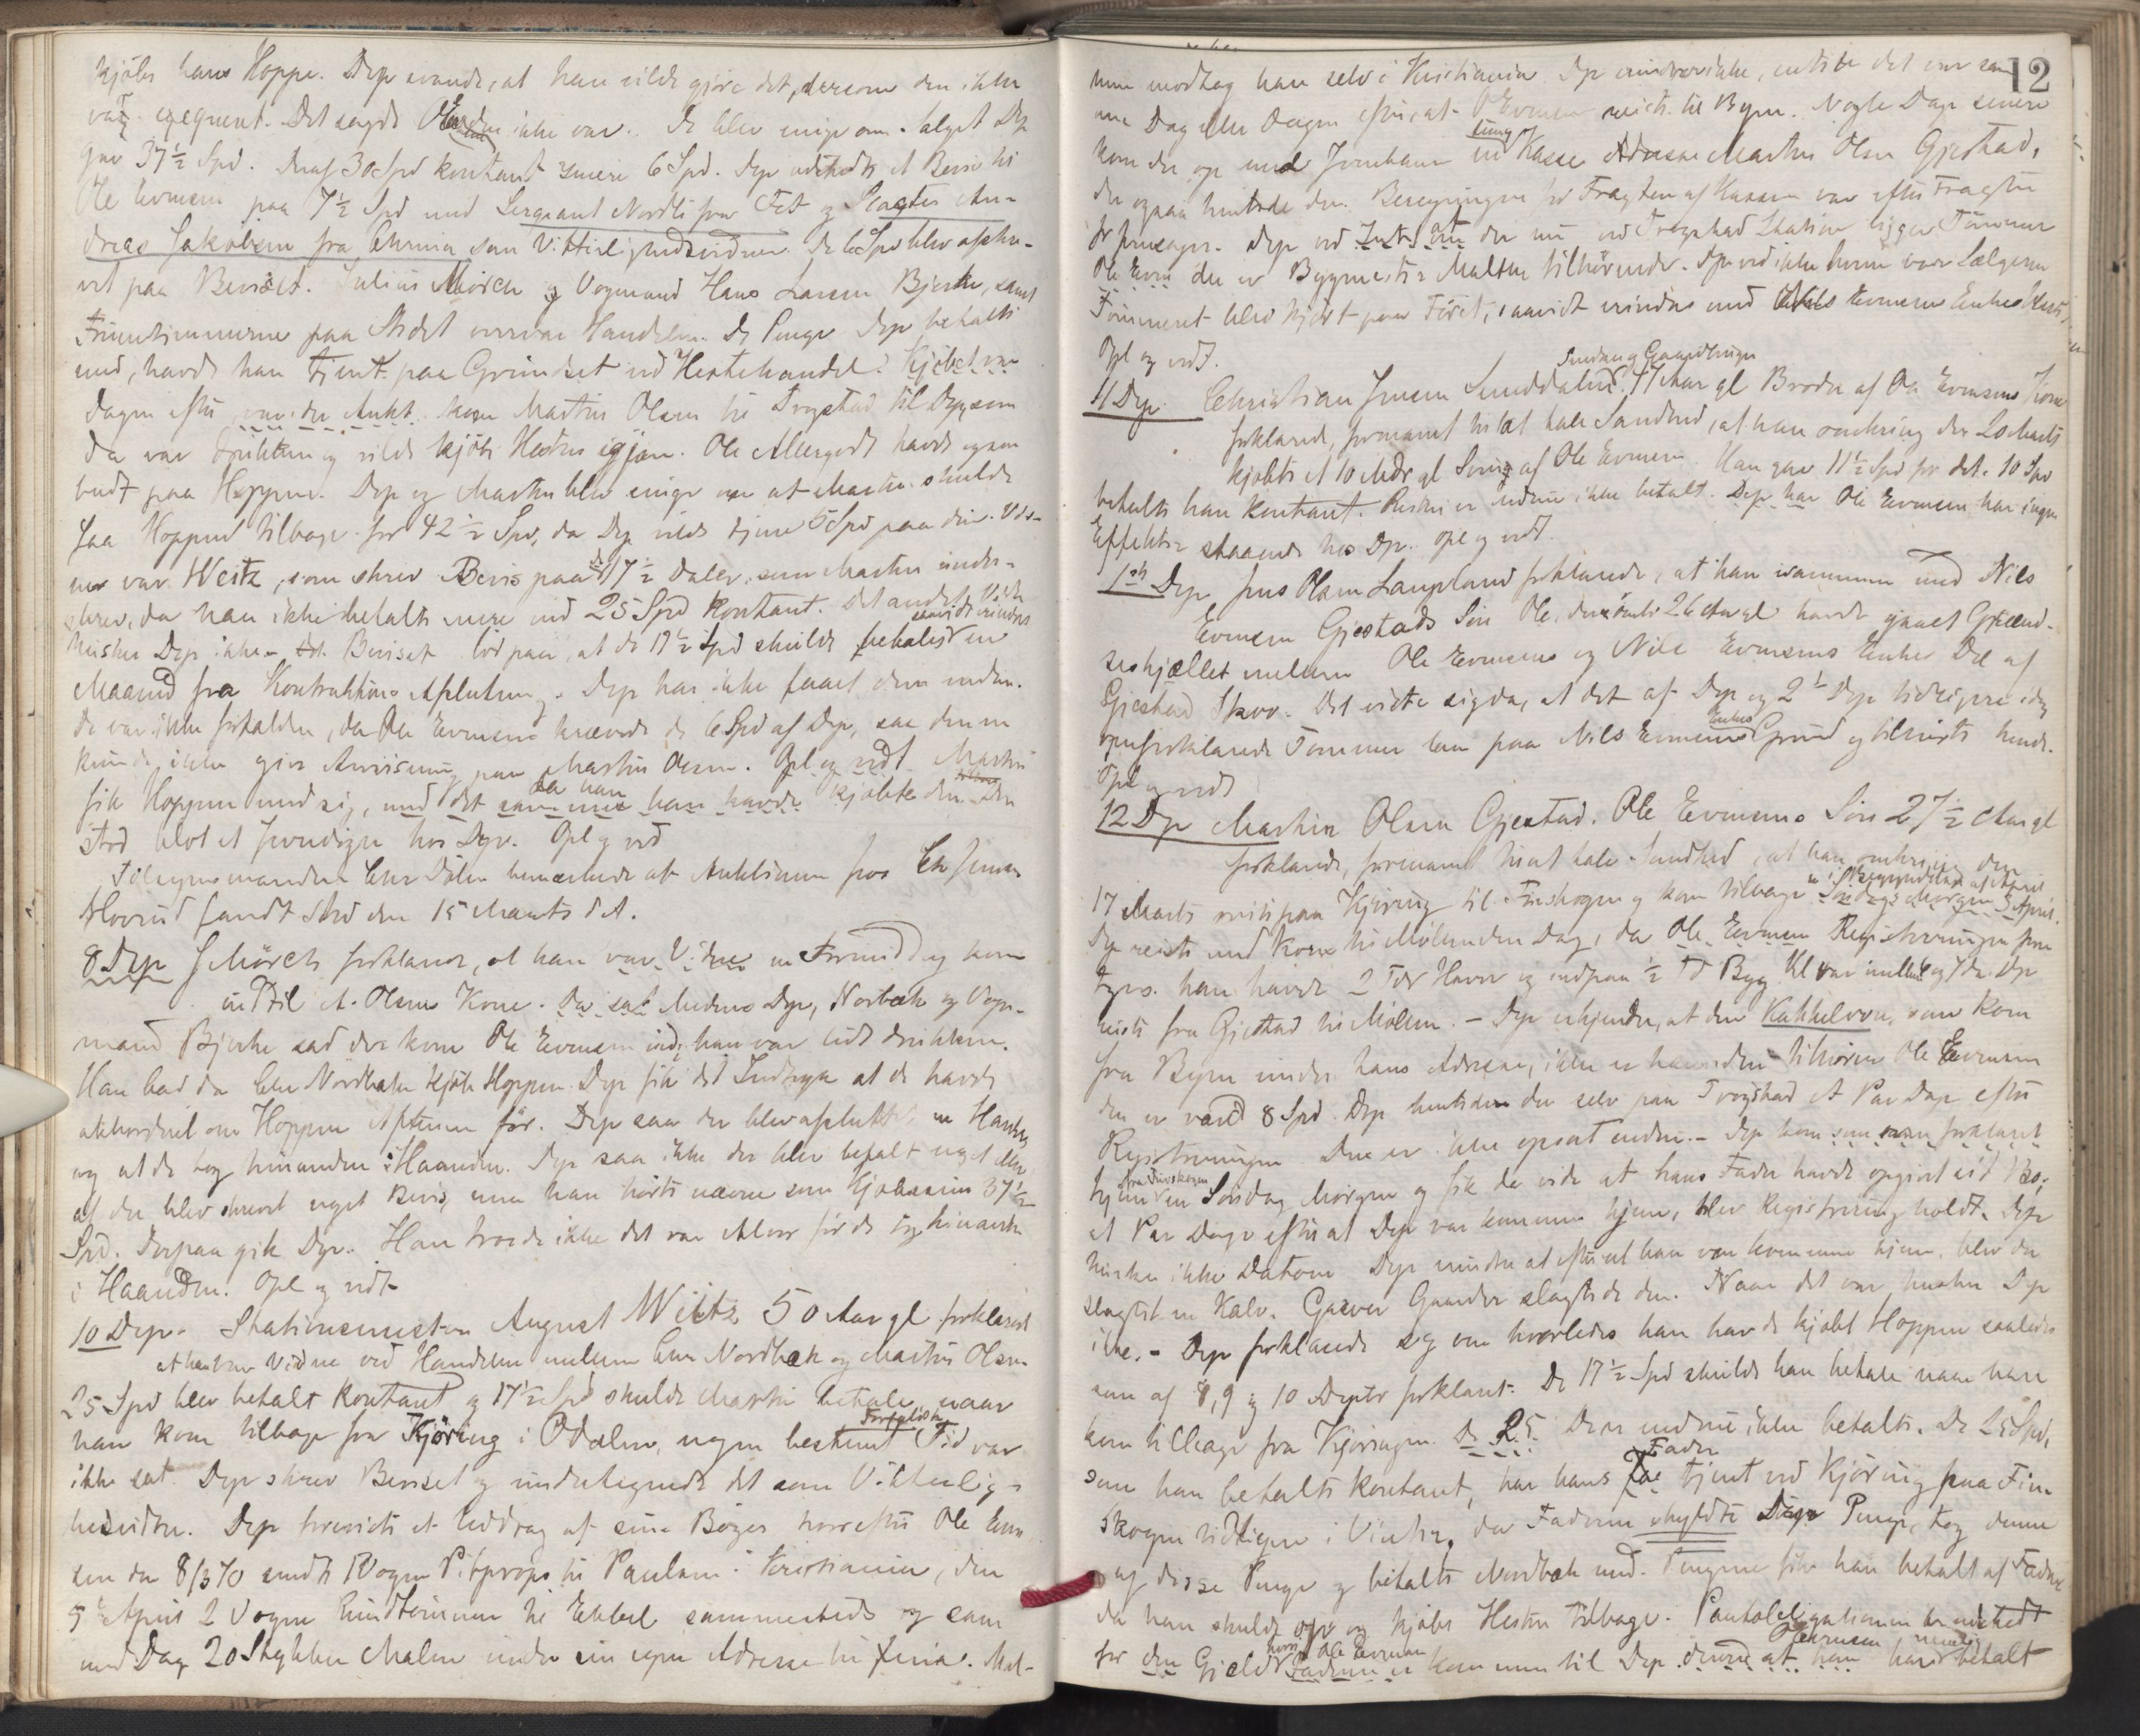 kjøbe hans Hoppe. Dep svarede, at han vilde gjøre det, dersom den ikke
var exequeret. Det sagde Ole Evensen ikke var. De blev enige om Salget Dep
gav 37½ Spd. Deraf 30 Spd kontant senere 6 Spd. Dep udstedte et Bevis til
Ole Evensen paa 7½ Spd med Sergeant Nordli fra Fet og Slagter An-
dreas Jakobsen fra Chrania som Vitterlighedsvidner. De 6 Spd blev afskre-
vet paa Beviset. Julius Mörch og Vognmand Hans Larsen Bjerke, samt
Fruentimmerne paa Stedet overvar Handelen. De Penge Dep betalte
med, havde han tjent paa Grundset ved Hestehandel. Kjøbet var
Dagen efter var der Aukt. kom Martin Olsen til Trygstad til Dep som
da var drukken og vilde kjøbe Hesten igjen. Ole Allergodt havde ogsaa
budt paa Hoppen. Dep og Martin blev enige om at Martin skulde
faa Hoppen tilbage for 42½ Spd, da Dep vilde tjene 5 Spd paa den. Vid-
ner var Weitz, som skrev Bevis paa de 17½ Daler, som Martin under-
skrev, da han ikke betalte mere end 25 Spd kontant. Det andet Vidne
husker Dep ikke. Beviset lød paa, at de 17½ Spd skulde betales saavidt erindres en
Maaned fra Kontraktens Afslutning. Dep har ikke faaet dem endnu.
De var ikke forfaldne, da Ole Evensen krævede de 6 Spd af Dep, saa denne
kunde ikke give Anvisning paa Martin Olsen. Opl og vedt. Martin
fik Hoppen med sig, med det samme da han havde kjøbte den. Den
stod blot et Pardøgn hos Dep. Opl og ved
Tilsynsmanden Chr Dølen bemærkede at Auktionen hos Chr Jensen
Hovind fandt Sted den 15 Marts d.A.
8 Dep J Mörch forklarer, at han var Vidne en Formiddag kom
ind til A. Olsens Kone. Da sat Medens Dep, Norbæk og Vogn-
mand Bjerke sad der kom Ole Evensen ind; han var lidt drukken.
Han bad da Chr Nordbæk kjøbe Hoppen. Dep fik det Indtryk at de havde
akkorderet om Hoppen Aftenen før. Dep saa der blev afsluttet en Handel
og at de tog hinanden i Haanden. Dep saa ikke der blev betalt noget eller
at der blev skrevet noget Bevis, men han hørte nævne som Kjøbesum 37½
Spd. Derpaa gik Dep. Han troede ikke det var Alvor før de tog hinanden
i Haanden. Opl og vedt
10 Dep. Stationsmester August Weitz 50 Aar gl forklarede
at han var Vidne ved Handelen mellem Chr Nordbæk og Martin Olsen.
25 Spd blev betalt kontant og 17½ Spd skulde Martin betale, naar
han kom tilbage fra Kjøring i Odalen, nogen bestemt Forfaldstid var
ikke sat. Dep skrev Beviset og undertegnede det som Vitterlig-
hedsvidne. Dep foreviste et Uddrag af sine Bøger hvorefter Ole Even
sen den 8/3 70 sendte 1 Vogn Pitprops til Paulsen i Kristiania, den
5te April 2 Vogne Rundtømmer til Ebbel sammesteds og sam
med Dag 20 Stykker Malm under sin egen Adresse til Xania. Mal-
12
men modtog han selv i Kristiania Dep erindrer ikke, enten det var sam
me Dag eller Dagen efter, at Ole Evensen reiste til Byen. Nogle Dage senere
kom der op med Jernbanen en tung Kasse Adresse Martin Olsen Gjestad,
der ogsaa hentede den. Beregningen for Fragten af Kassen var efter Fragten
for Jernsager. Dep ved Intet om der nu ved Trygstad Station ligger Tømmer
Ole Even der er Bygmester Malthe tilhørende. Dep ved ikke hvem var Sælgeren
Tømmeret blev kjørt paa Føret, saavidt erindres med Nils Evensens Enkes Heste
Opl og vedt.
11 Dep Christian Jensen Sunddalen Smedaug Gaardbruger 47 Aar gl Broder af Ole Evensens Kone
forklarede, formanet til at tale Sandhed, at han omkring den 20 Marts
kjøbte et 10 Mdr gl Sviin af Ole Evensen. Han gav 11½ Spd for det. 10 Spd
betalte han kontant. Resten er endnu ikke betalt. Dep har Ole Evensen har ingen
Effekter staaende hos Dep. Opl og vedt.
1st Dep Jens Olsen Laupland forklarede, at han sammen med Nils
Evensen Gjestads Søn Ole, den 26 Aar gl havde gaaet Grænd-
seskjællet mellem Ole Evensens og Nils Evensens Enkes Del af
Gjestad Skov. Det viste sig da, at det af Dep og 2den Dep tidligere idag
omforklarede Tømmer laa paa Nils Evensens Enkes Grund og tilhørte hende.
Opl og vedt
12 Dep Martin Olsen Gjestad. Ole Evensens Søn 27½ Aar gl
forklarede, formanet til at tale Sandhed, at han omkring den
17 Marts reiste paa Kjøring til Finskogen og kom tilbage i Begyndelsen af April Søndags Morgen 3 April.
Dep reiste med Korn til Møllen den Dag, da Ole Evensen Registreringen fore
toges. han havde 2 Tdr Havre og endpaa ½ Td Byg Kl var mellem 6 og 7 da Dep
reiste fra Gjestad til Møllen. – Dep erkjender, at den Kakkelovn, som kom
fra Byen under hans Adresse, ikke er hans den tilhører Ole Evensen
den er værd 8 Spd. Dep hentede den selv paa Trygstad et Par Dage efter
Registreringen Den er ikke opsat endnu. – Dep kom som sagt forklaret
hjem fra Finskogen en Søndag Morgen og fik da vide at hans Fader havde opgivet sit Bo;
et Par Dage efter at Dep var kommen hjem, blev Registrering holdt. Dep
husker ikke Datoen Dep mindes at efter at han var kommen hjem, blev der
slagtet en Kalv. Garver Gaarder slagtede den. Naar det var husker Dep
ikke. – Dep forklarede sig om hvorledes han havde kjøbt Hoppen saaledes
som af 8, 9 og 10 Depter forklaret. De 17½ Spd skulde han betale naar han
kom tilbage fra Kjøringen. De 25 De er endnu ikke betalt. De 25 Spd,
som han betalte kontant, har hans Fader tjent ved Kjøring paa Fin
skogen tidligere i Vinter, da Faderen skyldte Dep Penge, tog denne
af disse Penge og betalte Nordbæk med. Pengene fik han betalt af Faderen
da han skulde op og kjøbe Hesten tilbage. Pantobligationen er udstedt
for den Gjæld hvori Ole Evensen Faderen er kommen til Dep derved at han Ole Evensen har betalt